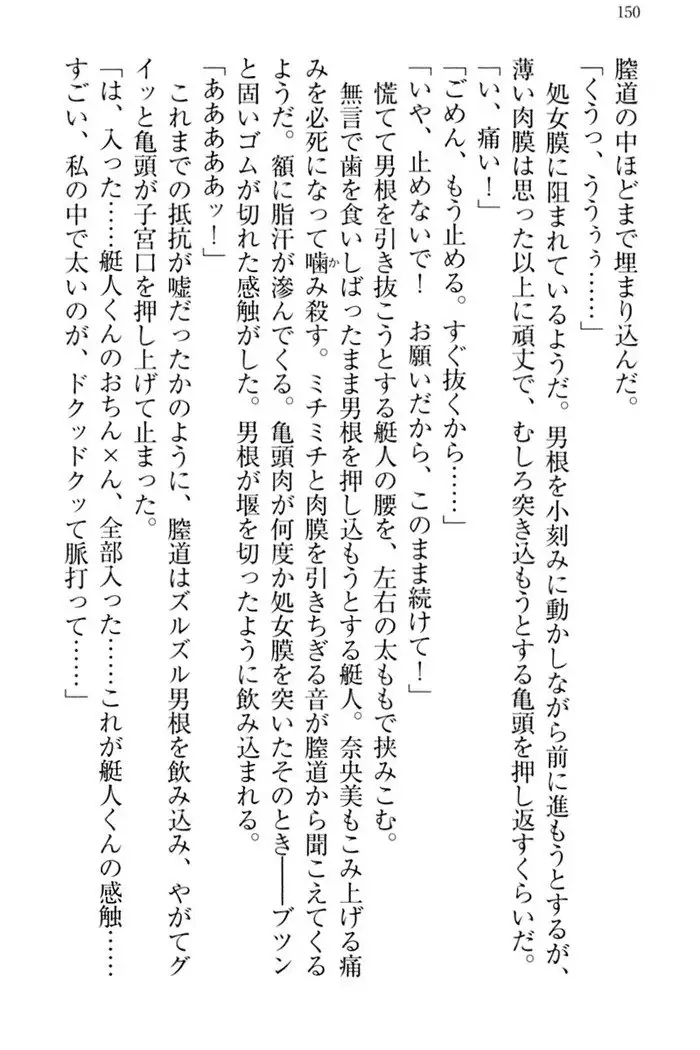 150
膣道の中ほどまで埋まり込んだ。
「くうっ、ううぅぅ……」
処女膜に阻まれているようだ。男根を小刻みに動かしながら前に進もうとするが、
薄い肉膜は思った以上に頑丈で、むしろ突き込もうとする亀頭を押し返すくらいだ。
「い、痛い！」
「ごめん、もう止める。すぐ抜くから……」
「いや、止めないで！　お願いだから、このまま続けて！」
慌てて男根を引き抜こうとする艇人の腰を、左右の太ももで挟みこむ。
無言で歯を食いしばったまま男根を押し込もうとする艇人。奈央美もこみ上げる痛
みを必死になって噛か
み殺す。ミチミチと肉膜を引きちぎる音が膣道から聞こえてくる
ようだ。額に脂汗が滲んでくる。亀頭肉が何度か処女膜を突いたそのとき――ブツン
と固いゴムが切れた感触がした。男根が堰を切ったように飲み込まれる。
「あああああッ！」
これまでの抵抗が嘘だったかのように、膣道はズルズル男根を飲み込み、やがてグ
イッと亀頭が子宮口を押し上げて止まった。
「は、入った……艇人くんのおちん×ん、全部入った……これが艇人くんの感触……
すごい、私の中で太いのが、ドクッドクッて脈打って……」